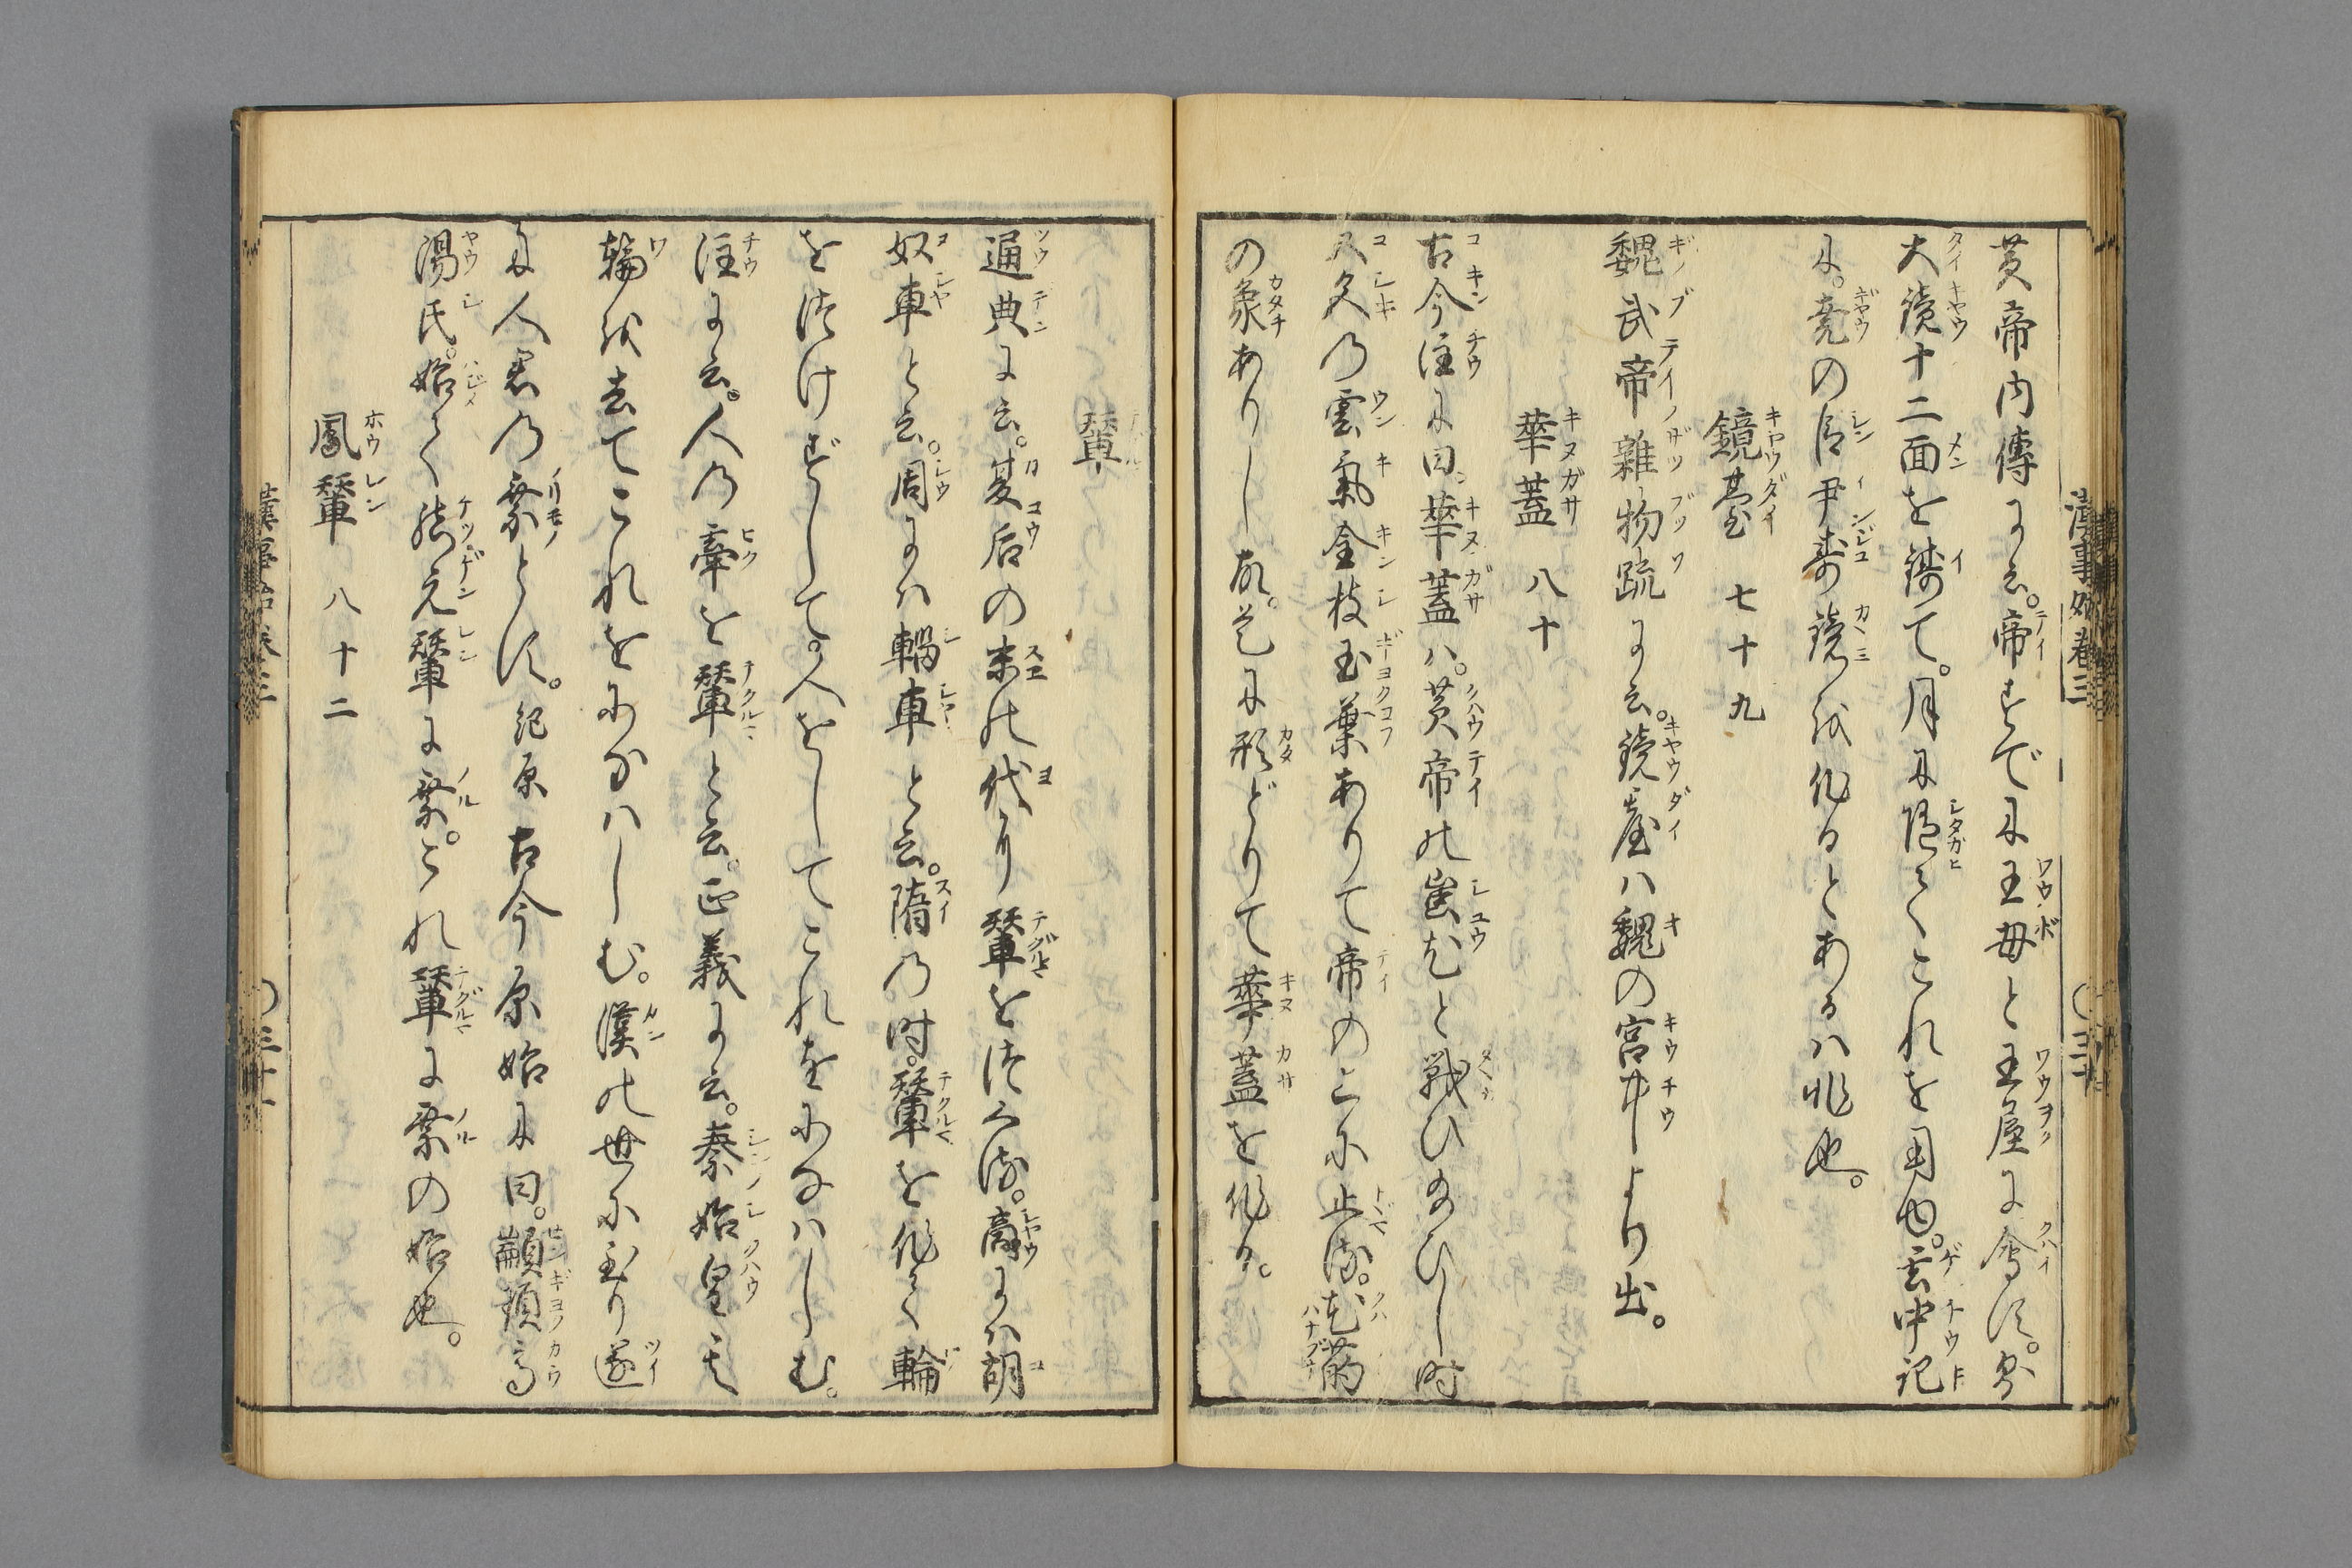 漢事始卷三
黄帝内傳に云。帝すでに王母と王屋に會す。乃
大鏡十二面を鋳て。月に随てこれを用ゆ。玄中記
に。堯の臣尹壽鏡を作るとあるハ非也。
鏡臺 七十九
魏武帝雜物疏に云。鏡臺ハ魏の宮中より出。
華蓋 八十
古今注に曰。華蓋ハ。黄帝の蚩尤と戦ひ給ひし時
又久の雲氣金枝玉葉ありて帝の上に止る。花蘤
の象ありし故。是に形どりて華蓋を作る。
輦
通典に云。夏后の末の代より輦をつくる。商にハ胡
奴車と云。周にハ輜車と云。隋の時。輦を作て輪
をつけずして。人をしてこれをになハしむ。
注に云。人の牽を輦と云。正義に云。秦始皇其
輪を去てこれをになハしむ。漢の世に至り遂
に人君の乗とす。紀原 古今原始に曰。顓頊高
湯氏。始て結元輦に乗。これ輦に乗の始也。
鳳輦 八十二
漢事始卷三